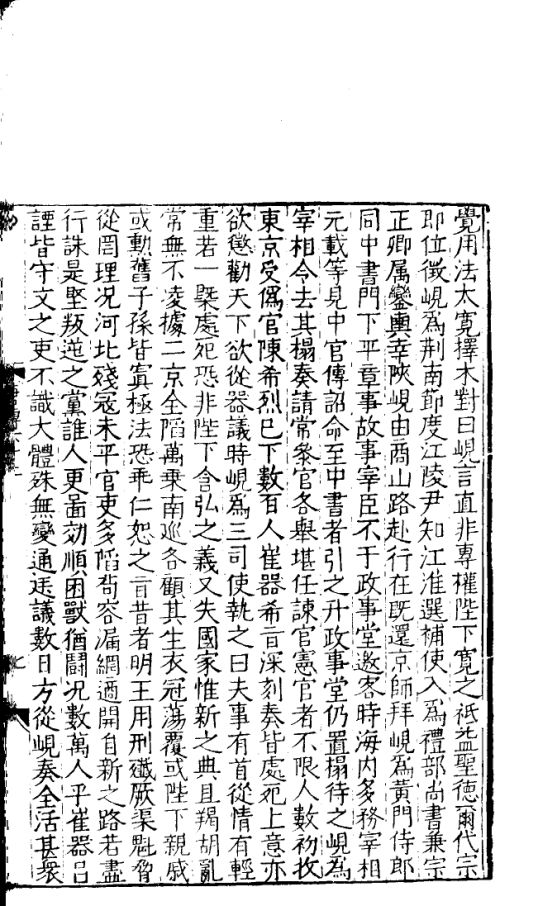 覺用法太寬擇木對曰峴言直非專權陛下寬之祇益聖德爾代宗
即位徵峴為荆南節度江陵尹知江淮選補使入為禮部尚書兼宗
正卿属鑾輿幸陝峴由商山路赴行在既還京師拜峴為黃門侍郎
同中書門下平章事故事宰臣不于政事堂邀客時海内多務宰相
元載等見中官傳詔命至中書者引之升政事堂仍置榻待之峴為
宰相令去其榻奏請常叅官各舉堪任諫官憲官者不限人數初收
東京受僞官陳希烈已下數百人崔器希旨深刻奏皆處死上意亦
欲懲勸天下欲從器議時峴為三司使執之曰夫事有首從情有輕
重若一槩處死恐非陛下含弘之義又失國家惟新之典且羯胡亂
常無不凌據二京全陷萬乗南廵各顧其生衣冠蕩覆或陛下親戚
或勲舊子孫皆寘極法恐乖仁恕之旨昔者明王用刑殱厥渠魁脅
從罔理况河北殘寇未平官吏多陷茍容漏網適開自新之路若盡
行誅是堅叛逆之黨誰人更啚効順困獸猶鬪况數萬人乎崔器吕
諲皆守文之吏不識大體殊無變通廷議數日方從峴奏全活甚衆